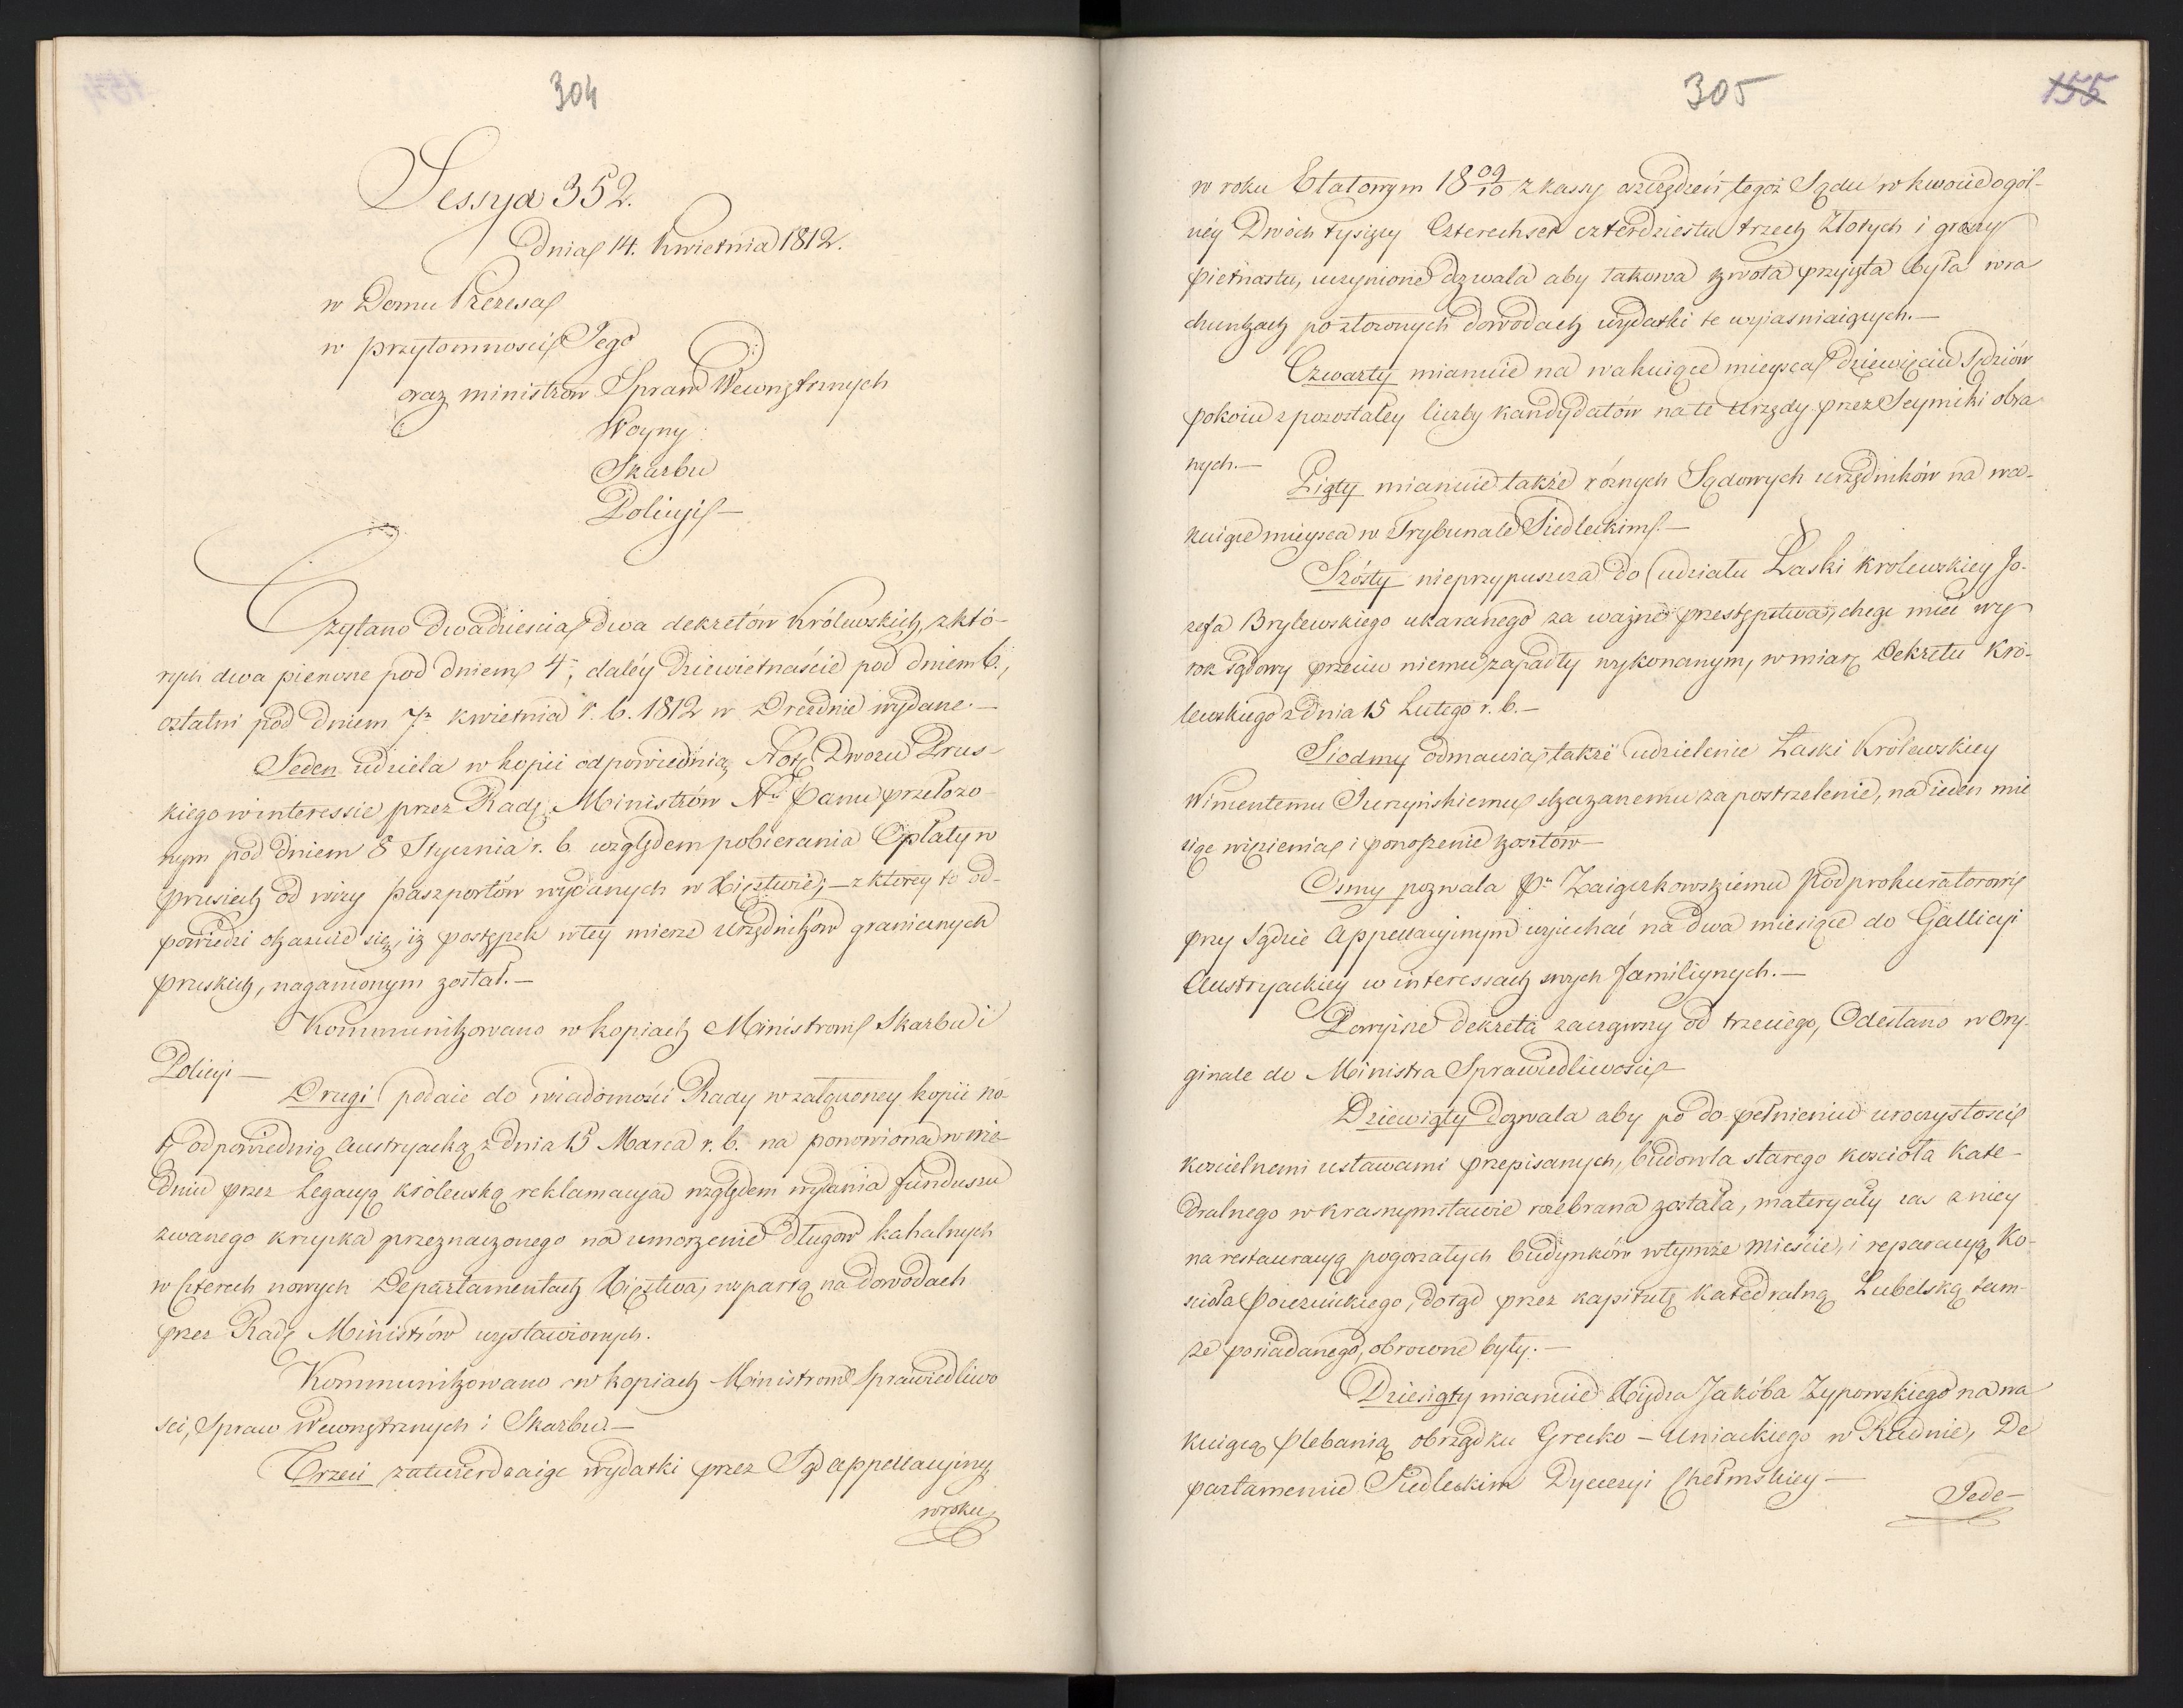 304
Sessya 352.
Dnia 14. Kwietnia 1812.
w Domu Prezesa
w przytomności Jego
oraz ministrów Spraw Wewnętrznych
Woyny
Skarbu
Policyi —
Czytano dwadzieścia dwa dekretów Królewskich, z któ-
rych dwa pierwsze pod dniem 4., daléy dziewietnaście pod dniem 6.,
ostatni pod dniem 7. kwietnia r. b. 1812 w Dreźnie wydane. —
Jeden udziela w kopii odpowiednią Notę Dworu Prus-
kiego w interessie przez Radę Ministrów Nu Panu przełożo-
nym pod dniem 8 Stycznia r. b. względem pobierania Opłaty w
prusiech od wizy paszportów wydanych w Xięztwie; — z którey to od-
powiedzi okazuie się, iż postępek w tey mierze Urzędników granicznych
pruskich, naganionym został. —
Kommunikowano w kopiach Ministrom Skarbu i
Policyi —
Drugi podaie do wiadomości Rady w załączoney kopii no-
tę odpowiednią Austryacką z dnia 15 Marca r. b. na ponowioną w Wie-
dniu przez Legacyą królewską reklamacyą względem wydania funduszu
zwanego krupka przeznaczonego na umorzenie długów kahalnych
w czterech nowych Departamentach Xięztwa, wspartą na dowodach
przez Radę Ministrów wystawionych.
Kommunikowano w kopiach Ministrom Sprawiedliwo
ści, Spraw Wewnętrznych i Skarbu. —
Trzeci zatwierdzaiąc wydatki przez Sąd appellacyiny
w roku
305
155
w roku Etatowym 18 09/10 z kassy oszczędzeń tegoż Sądu w kwocie ogól-
néy Dwóch tysięcy Czterechset czterdziestu trzech Złotych i groszy
pietnastu, uczynione dozwala aby takowa kwota przyięta była w ra
chunkach po złożonych dowodach wydatki te wyiaśniaiących. —
Czwarty mianuie na wakuiące mieysca dziewięciu Sędziów
pokoiu z pozostałey liczby kandydatów na te Urzędy przez Seymiki obra
nych. —
Piąty mianuie także różnych Sądowych urzędników na wa-
kuiące mieysca w Trybunale Siedleckim. —
Szósty nieprzypuszcza do udziału Łaski Krolewskiey Jo-
zefa Brylewskiego ukaranego za ważne przestępstwa, chcąc mieć wy
rok sądowy przeciw niemu zapadły wykonanym, w miarę Dekretu Kró-
lewskiego z dnia 15 Lutego r. b. —
Siodmy odmawia także udzielenie Łaski Królewskiey
Wincentemu Juczyńskiemu skazanemu za postrzelenie, na ieden mie
siąc więzienia i ponoszenie kosztów —
Osmy pozwala Pu Zaigczkowskiemu Podprokuratorowi
przy Sądzie Appellacyinym wyiechać na dwa miesiące do Gallicyi
Austryackiey w interessach swych familiynych. —
Powyższe Dekreta zacząwszy od trzeciego, Odesłano w Ory-
ginale do Ministra Sprawiedliwości
Dziewiąty dozwala aby po dopełnieniu uroczystości
kościelnemi ustawami przepisanych, budowla starego kościoła Kate-
dralnego w Krasnymstawie rozebrana została, materyały zaś z niey
na restauracyą pogorzałych budynków w tymże Mieście, i reparacyą Ko-
ścioła Poiezuickiego, dotąd przez kapitułę katedralną Lubelską tam-
że posiadanego, obrocone były. —
Dziesiąty mianuie Xiędza Jakóba Zypowskiego na wa
kuiącą Plebanią obrządku Grecko – Uniackiego w Rudnie, De
partamencie Siedleckim Dyecezyi Chełmskiey —
Jede-